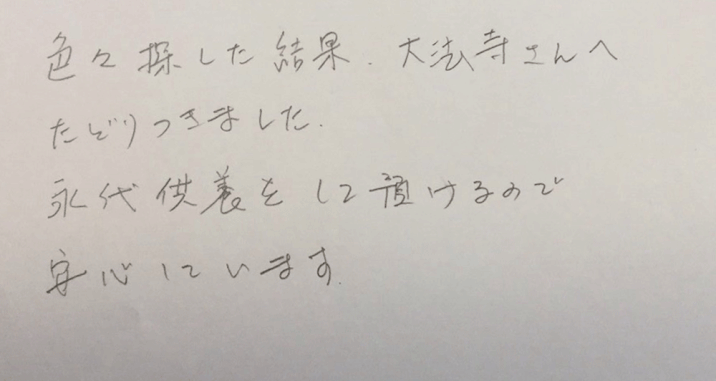 色々探した結果、大法寺さんへ
たどりつきました.
永代供養をして頂けるので
安心しています.